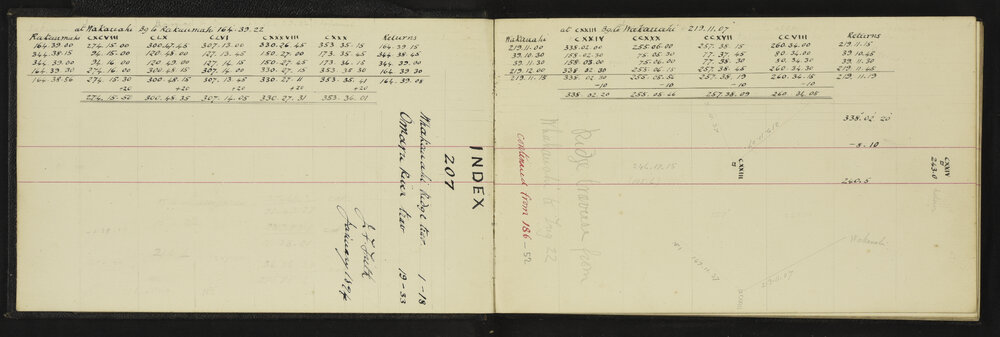 at Wakauahi Bg to Rakaumah 164.39.22
Rakaumah CXCVIII CLX CCVI CXXXVIII CXXX Returns
164.39.00 274.15.00 300.47.45 307.13.00 330.26.45 353.35.15 164.39.15
344.38.15 94.15.00 120.48.00 127.13.45 150.27.00 173.35.45 344.38.45
344.39.00 94.16.00 120.49.00 127.14.15 150.27.45 173.36.15 344.39.30
164.39.30 274.16.00 300.48.15 307.14.00 330.27.15 353.35.30 164.39.30
164.38.56 274.15.30 300.48.15 307.13.45 330.27.11 353.35.41 164.39.08
+20 +20 +20 +20 +20
274.15.50 300.48.35 307.14.05 330.27.31 353.36.01
INDEX
207
Whakauahi Ridge trav. 1-18
Omaru River trav 19-53
January
at CXXIII Bg to Wakauahi 219.11.07
Wakauahi CXXIV CCXXX CCXVII CCVIII Returns
219.11.00 338.02.00 255.06.00 257.38.15 260.34.00 219.11.15
39.10.30 158.02.30 75.05.30 77.37.45 80.34.00 39.10.45
39.11.30 158.03.00 75.06.00 77.38.30 80.34.30 39.11.30
219.12.00 338.02.30 255.06.15 257.38.45 260.34.30 219.11.45
219.11.18 338.02.30 255.05.56 257.38.19 260.34.15 219.11.19
-10 -10 -10 -10
338.02.20 255.05.46 257.38.09 260.34.05
338.02.20
-8.10
240.5
CXXIV
243.0
CXXIII
Ridge traverse from
Whakauahi to Trig 22
continued from 186-52
Wakauahi
219.11.07